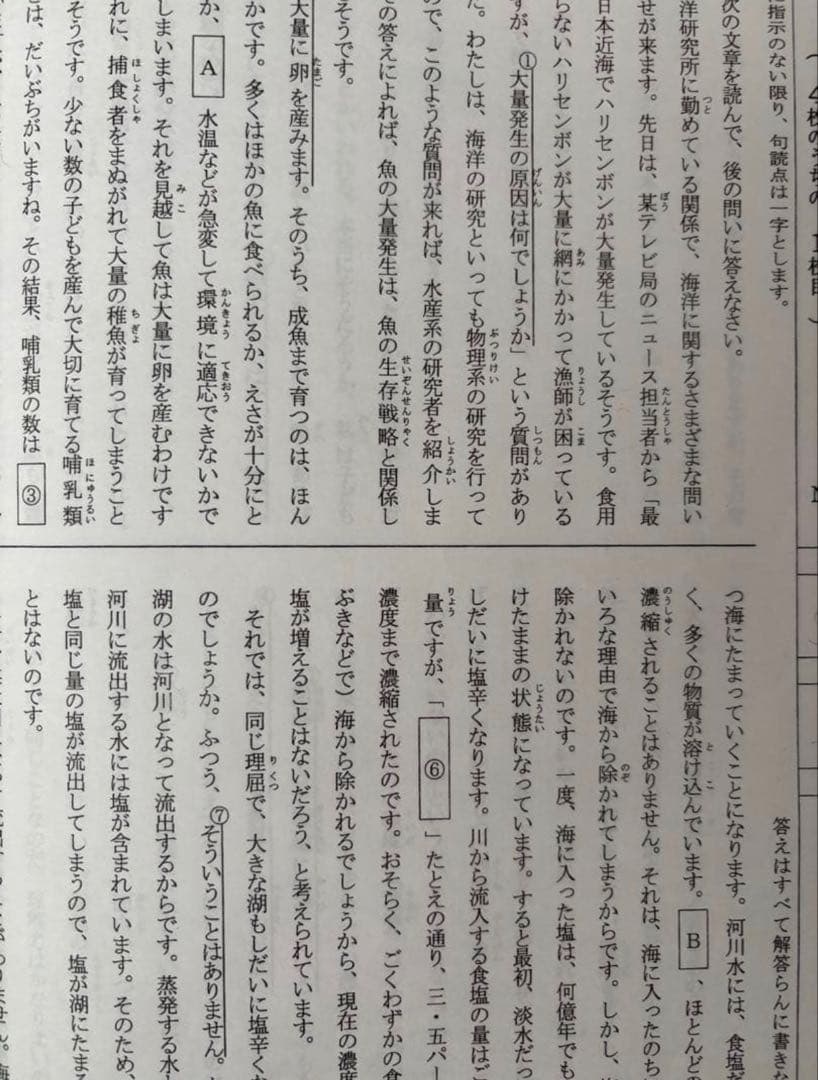 に指示のない限り、句読点は一字とします。
次の文章を読んで、後の問いに答えなさい。
洋研究所に勤めている関係で、海洋に関するさまざまな問い
せが来ます。先日は、某テレビ局のニュース担当者から「最
日本近海でハリセンボンが大量発生しているそうです。食用
らないハリセンボンが大量に網にかかって漁師が困っている
すが、①大量発生の原因は何でしょうか」という質問があり
た。わたしは、海洋の研究といっても物理系の研究を行って
ので、このような質問が来れば、水産系の研究者を紹介しま
の答えによれば、魚の大量発生は、魚の生存戦略と関係し
そうです。
大量に卵を産みます。そのうち、成魚まで育つのは、ほん
かです。多くはほかの魚に食べられるか、えさが十分にと
か、A水温などが急変して環境に適応できないかで
しまいます。それを見越して魚は大量に卵を産むわけです
れに、捕食者をまぬがれて大量の稚魚が育ってしまうこと
そうです。少ない数の子どもを産んで大切に育てる哺乳類
とは、だいぶちがいますね。その結果、哺乳類の数は③
答えはすべて解答らんに書きな
つ海にたまっていくことになります。河川水には、食塩だ
く、多くの物質が溶け込んでいます。B、ほとんどの
濃縮されることはありません。それは、海に入ったのち
いろな理由で海から除かれてしまうからです。しかし、
除かれないのです。一度、海に入った塩は、何億年でも
けたままの状態になっています。すると最初、淡水だっ
しだいに塩辛くなります。川から流入する食塩の量はご
量ですが、「⑥」たとえの通り、三・五パー
濃度まで濃縮されたのです。おそらく、ごくわずかの食
ぶきなどで）海から除かれるでしょうから、現在の濃度
塩が増えることはないだろう、と考えられています。
それでは、同じ理屈で、大きな湖もしだいに塩辛くな
のでしょうか。ふつう、⑦そういうことはありません。
湖の水は河川となって流出するからです。蒸発する水
河川に流出する水には塩が含まれています。そのため、
塩と同じ量の塩が流出してしまうので、塩が湖にたまる
とはないのです。